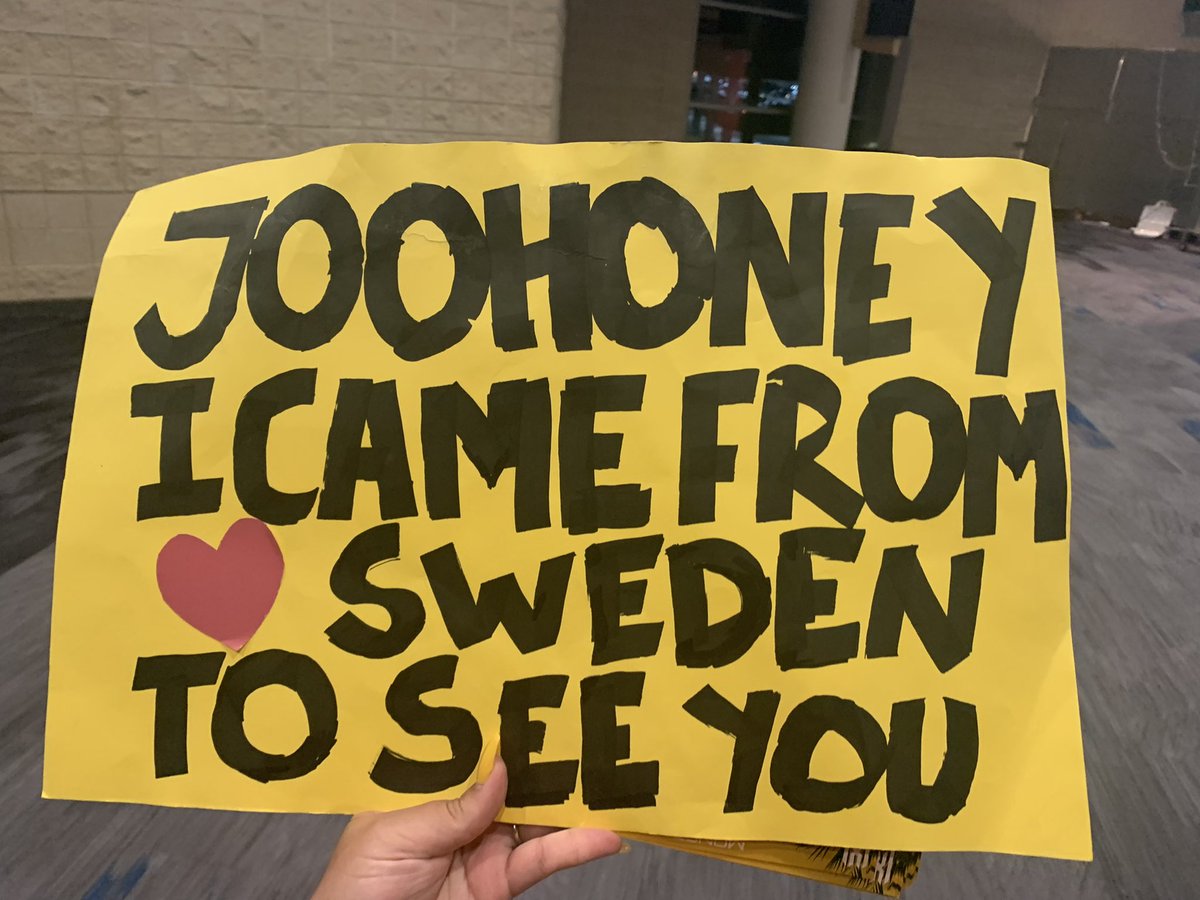 JOOHONEY
I CAME FROM
SWEDEN
TO SEE YOU